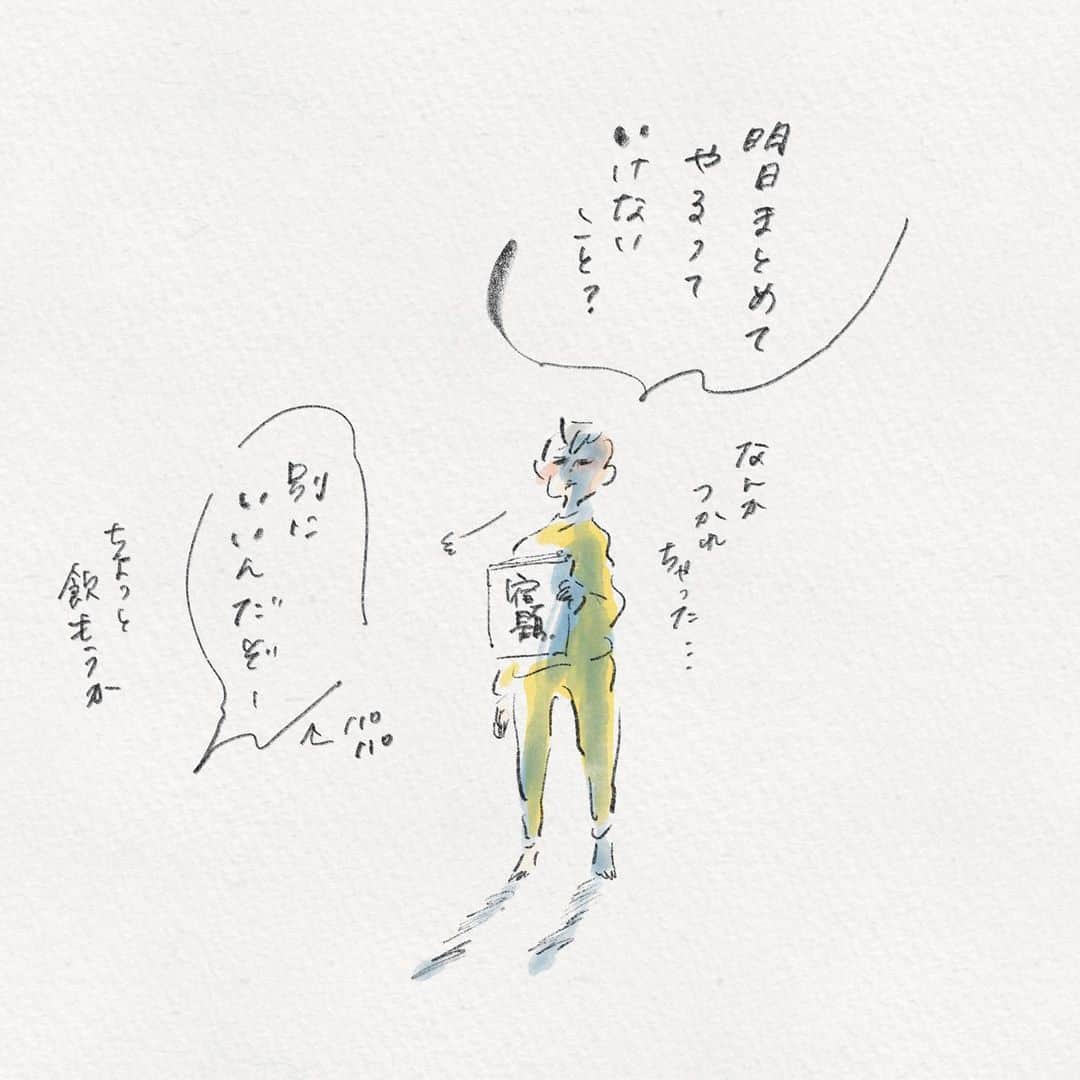 明日まとめて
やるって
いけない
こと?
なんか
つかれ
ちゃった…
宿
題
別に
いいんだぞー
パパ
ちょっと
飲もっか